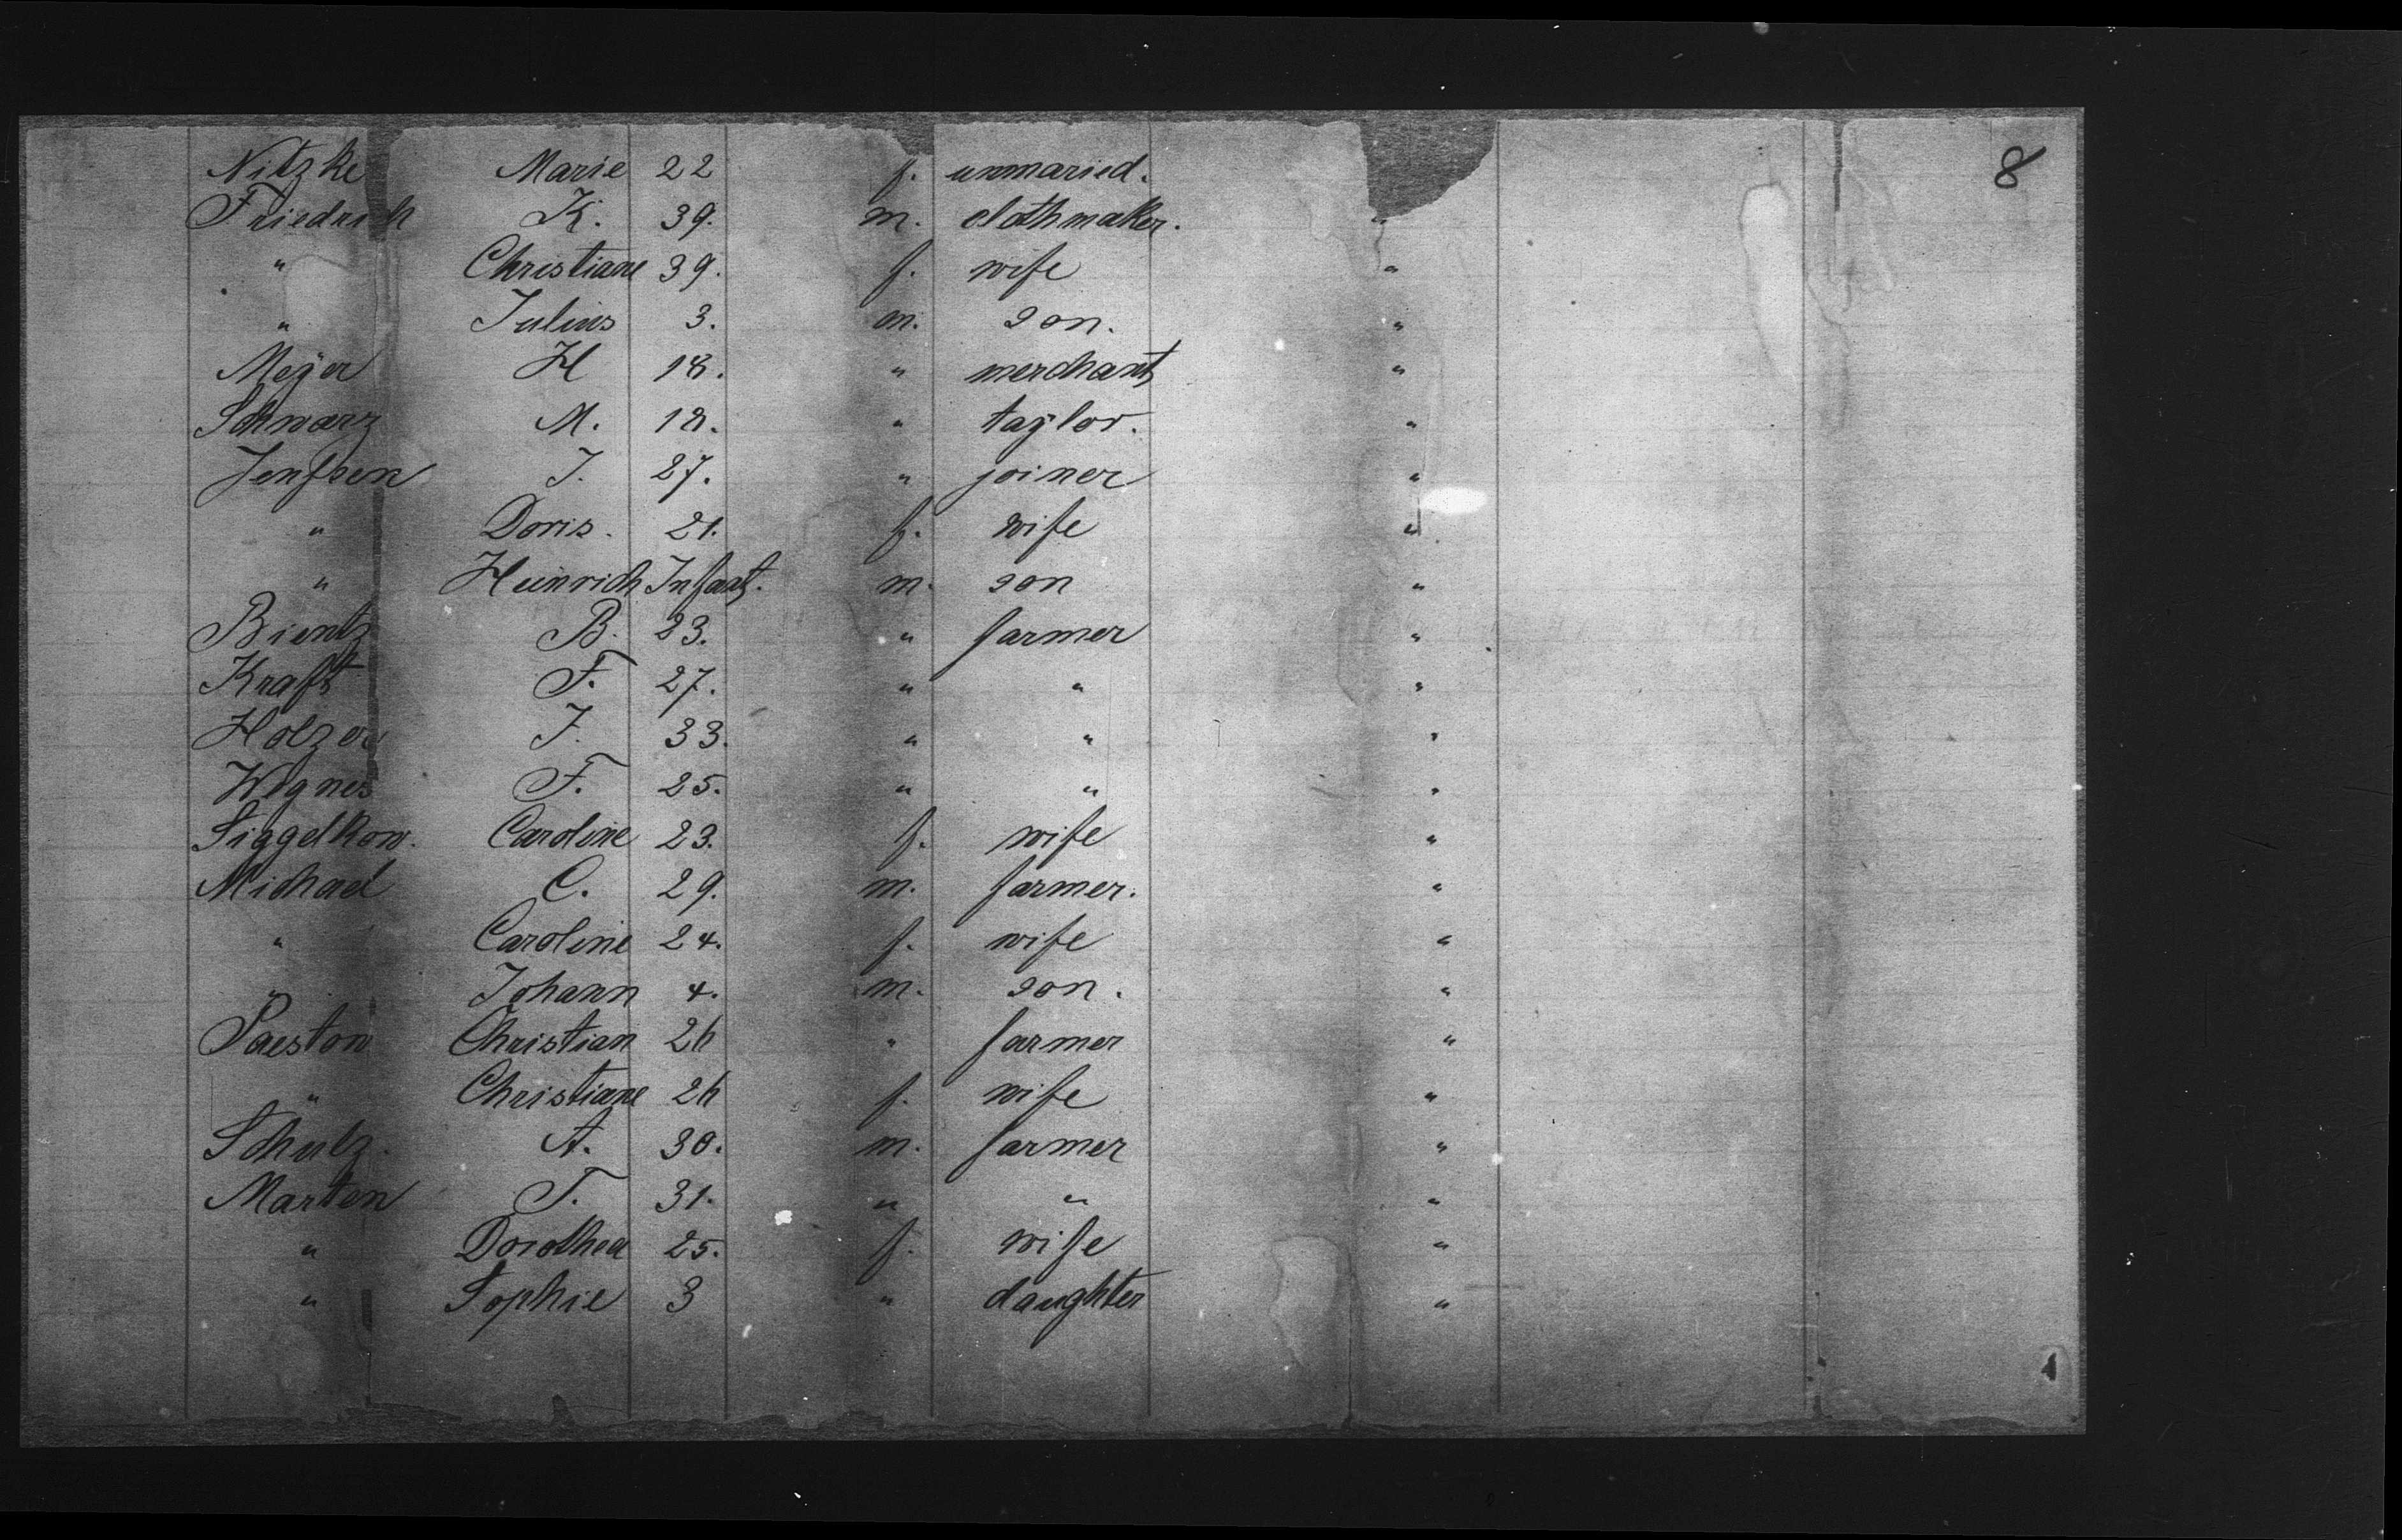 8
Nitzke Marie 22 f. unmaried.
Friedrich K. 39. m. clothmaker. "
" Christiane 39. f. wife "
" Julius 3. m. son. "
Meÿer H 18. " merchant "
Schwarz M. 18. " taylor. "
Jenssen J. 27. " joiner "
" Doris. 21. f. wife "
" Heinrich Infant. m. son "
Bientz B. 23. " farmer "
Kraft F. 27. " " "
Holzer J. 33. " " "
Wegner F. 25. " " "
Siggelkow. Caroline 23. f. wife "
Michael C. 29. m. farmer. "
" Caroline 24. f. wife "
" Johann 4. m. son. "
Paeston Christian 26 " farmer "
" Christiane 26 f. wife "
Schulz. A. 30. m. farmer "
Marten T. 31. " " "
" Dorothea 25. f. wife "
" Sophie 3 " daughter "